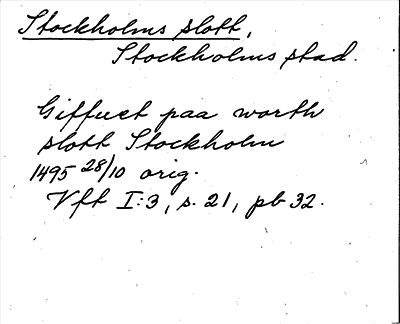 Stockholms slott,
Stockholms stad.
Giffuet paa worth
slott Stockholm
1495 28/10 orig.
Vft I:3, s. 21, pb 32.